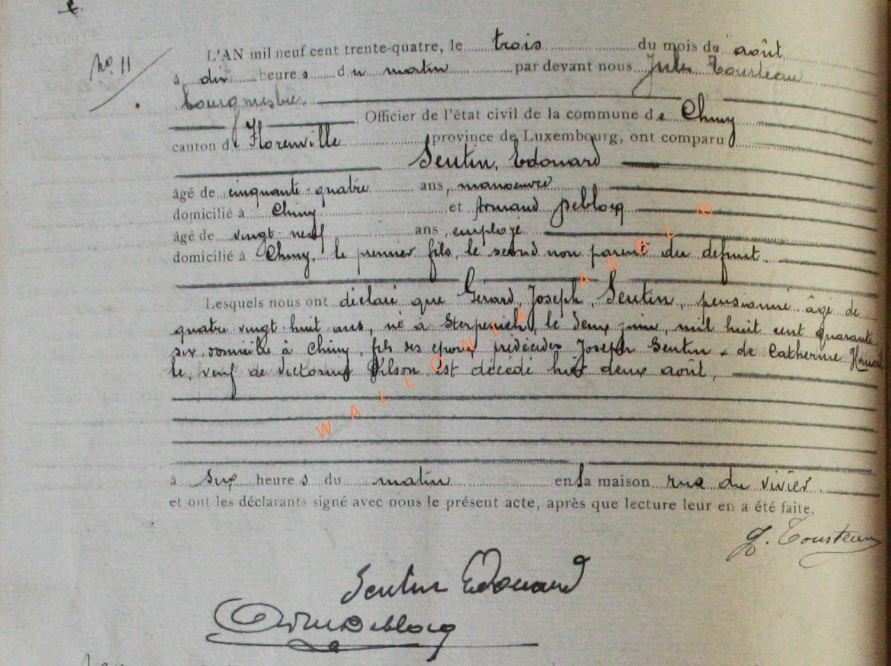 No. 11
L'AN mil neuf cent trente-quatre, le trois du mois de août
à dix heures du matin par devant nous Jules Tousteau
bourgmestre. Officier de l'état civil de la commune de Chiny
canton de Florenville province de Luxembourg, ont comparu
Sentin, Edouard
âgé de cinquante-quatre ans, manoeuvre
domicilié à Chiny et Armand Deblocq
âgé de vingt neuf ans, employé
domicilié à Chiny, le premier fils, le second non parent du défunt.
Lesquels nous ont déclaré que Gérard, Joseph, Sentin, pensionné âgé de
quatre vingt huit ans, né à Sterpenich, le deux juin, mil huit cent quarante
six domicilié à Chiny, fils des époux prédécédés Joseph Sentin & de Catherine
le, veuf de Victorine Gilson est décédé hier deux août,
à six heures du matin en sa maison rue du vivier.
et ont les déclarants signé avec nous le présent acte, après que lecture leur en a été faite.
J. Tousteau
Sentin Edouard
Deblocq
WALLONIA ASBL ©